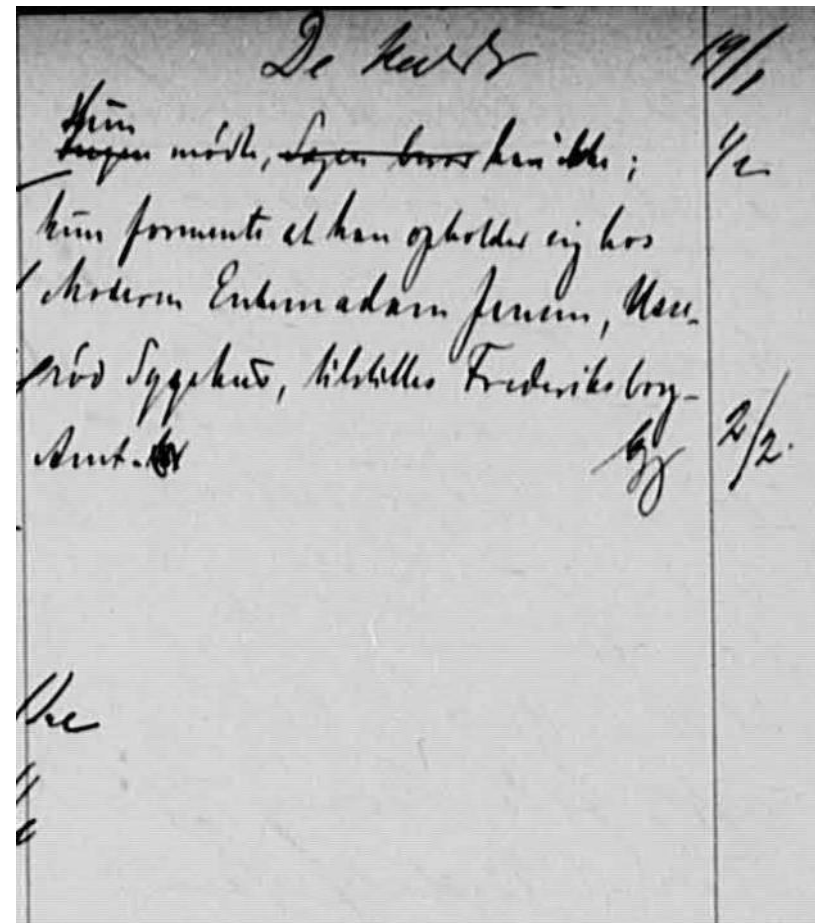 De kaldt 19/1
Hun
Ingen mødte, Sagen beror han ikke; 1/2
hun formente at han opholder sig hos
Moderen Enkemadam Jensen, Usse-
rød Sygehus, tilstilles Frederiksborg
Amt. 2/2.